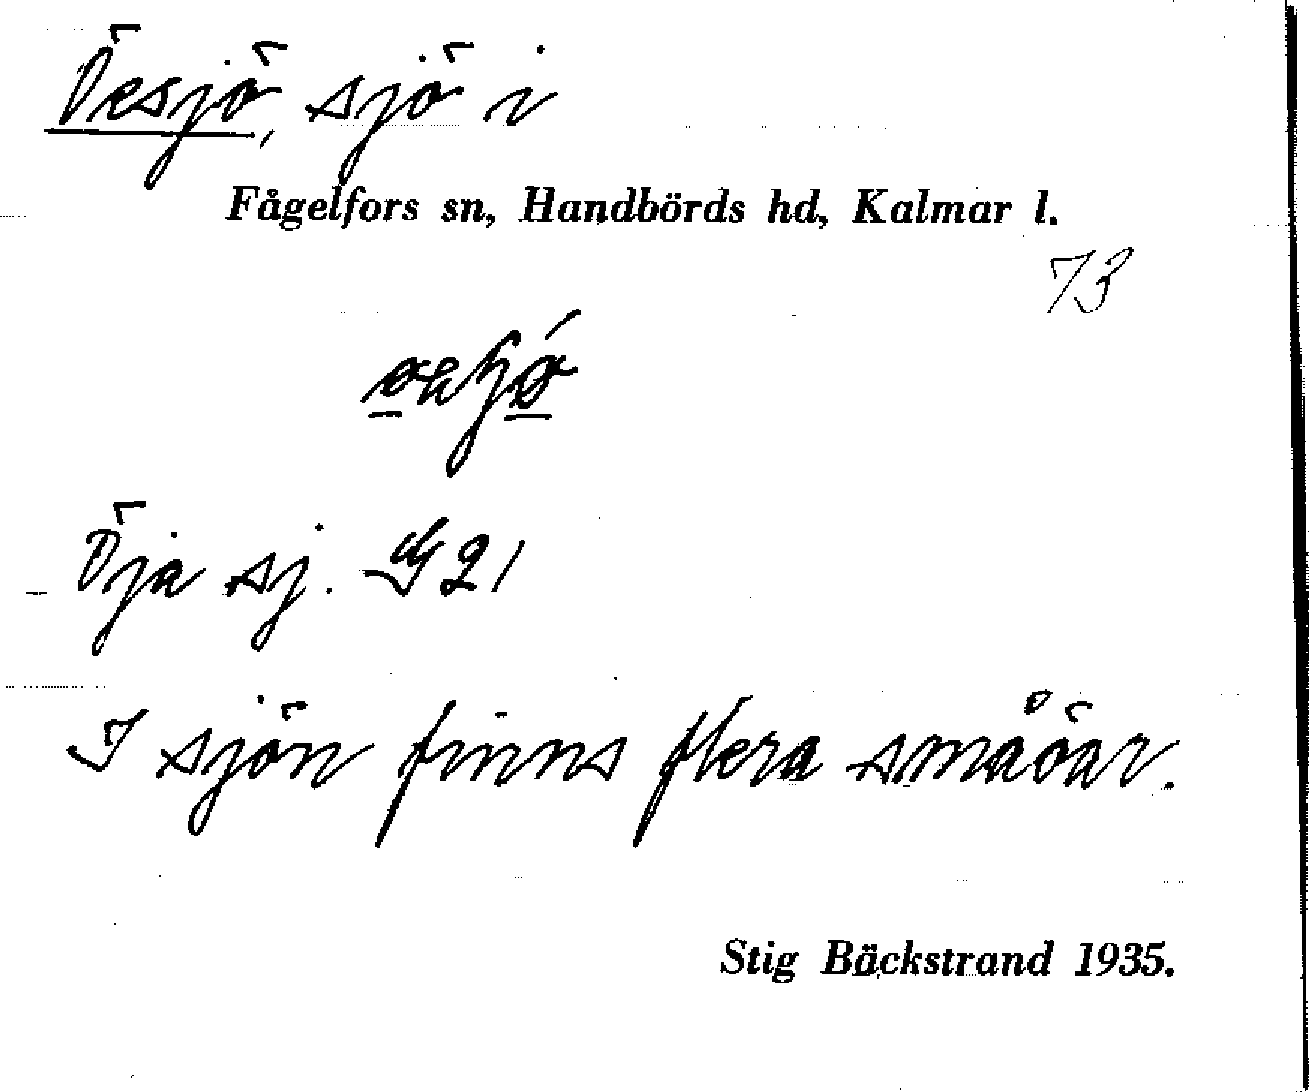 Öesjö, sjö i
Fågelfors sn, Handbörds hd, Kalmar l.
73
Öja sj. G 21
I sjön finns flera småöar.
Stig Bäckstrand 1935.